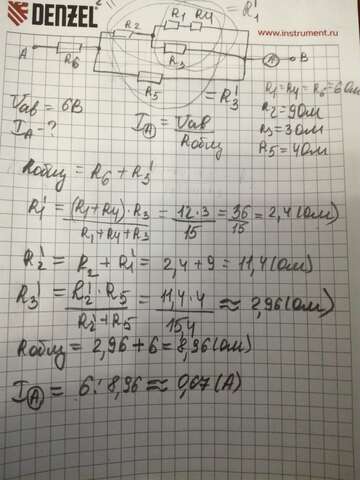 DENZEL
www.instrument.ru
= R₁'
R₁ R₄
R₂
A R₆ R₃ A B
R₅
= R₃'
R₁=R₄=R₆=6 Ом
Uав = 6В
R₂=9 Ом
I_A - ?
I_A = Uав / Rобщ
R₃=3 Ом
R₅=4 Ом
Rобщ = R₆ + R₃'
R₁' = (R₁+R₄)·R₃ / R₁+R₄+R₃ = 12·3 / 15 = 36 / 15 = 2,4 (Ом)
R₂' = R₂ + R₁' = 2,4 + 9 = 11,4 (Ом)
R₃' = R₂'·R₅ / R₂'+R₅ = 11,4·4 / 15,4 ≈ 2,96 (Ом)
Rобщ = 2,96 + 6 = 8,96 (Ом)
I_A = 6 : 8,96 ≈ 0,67 (А)